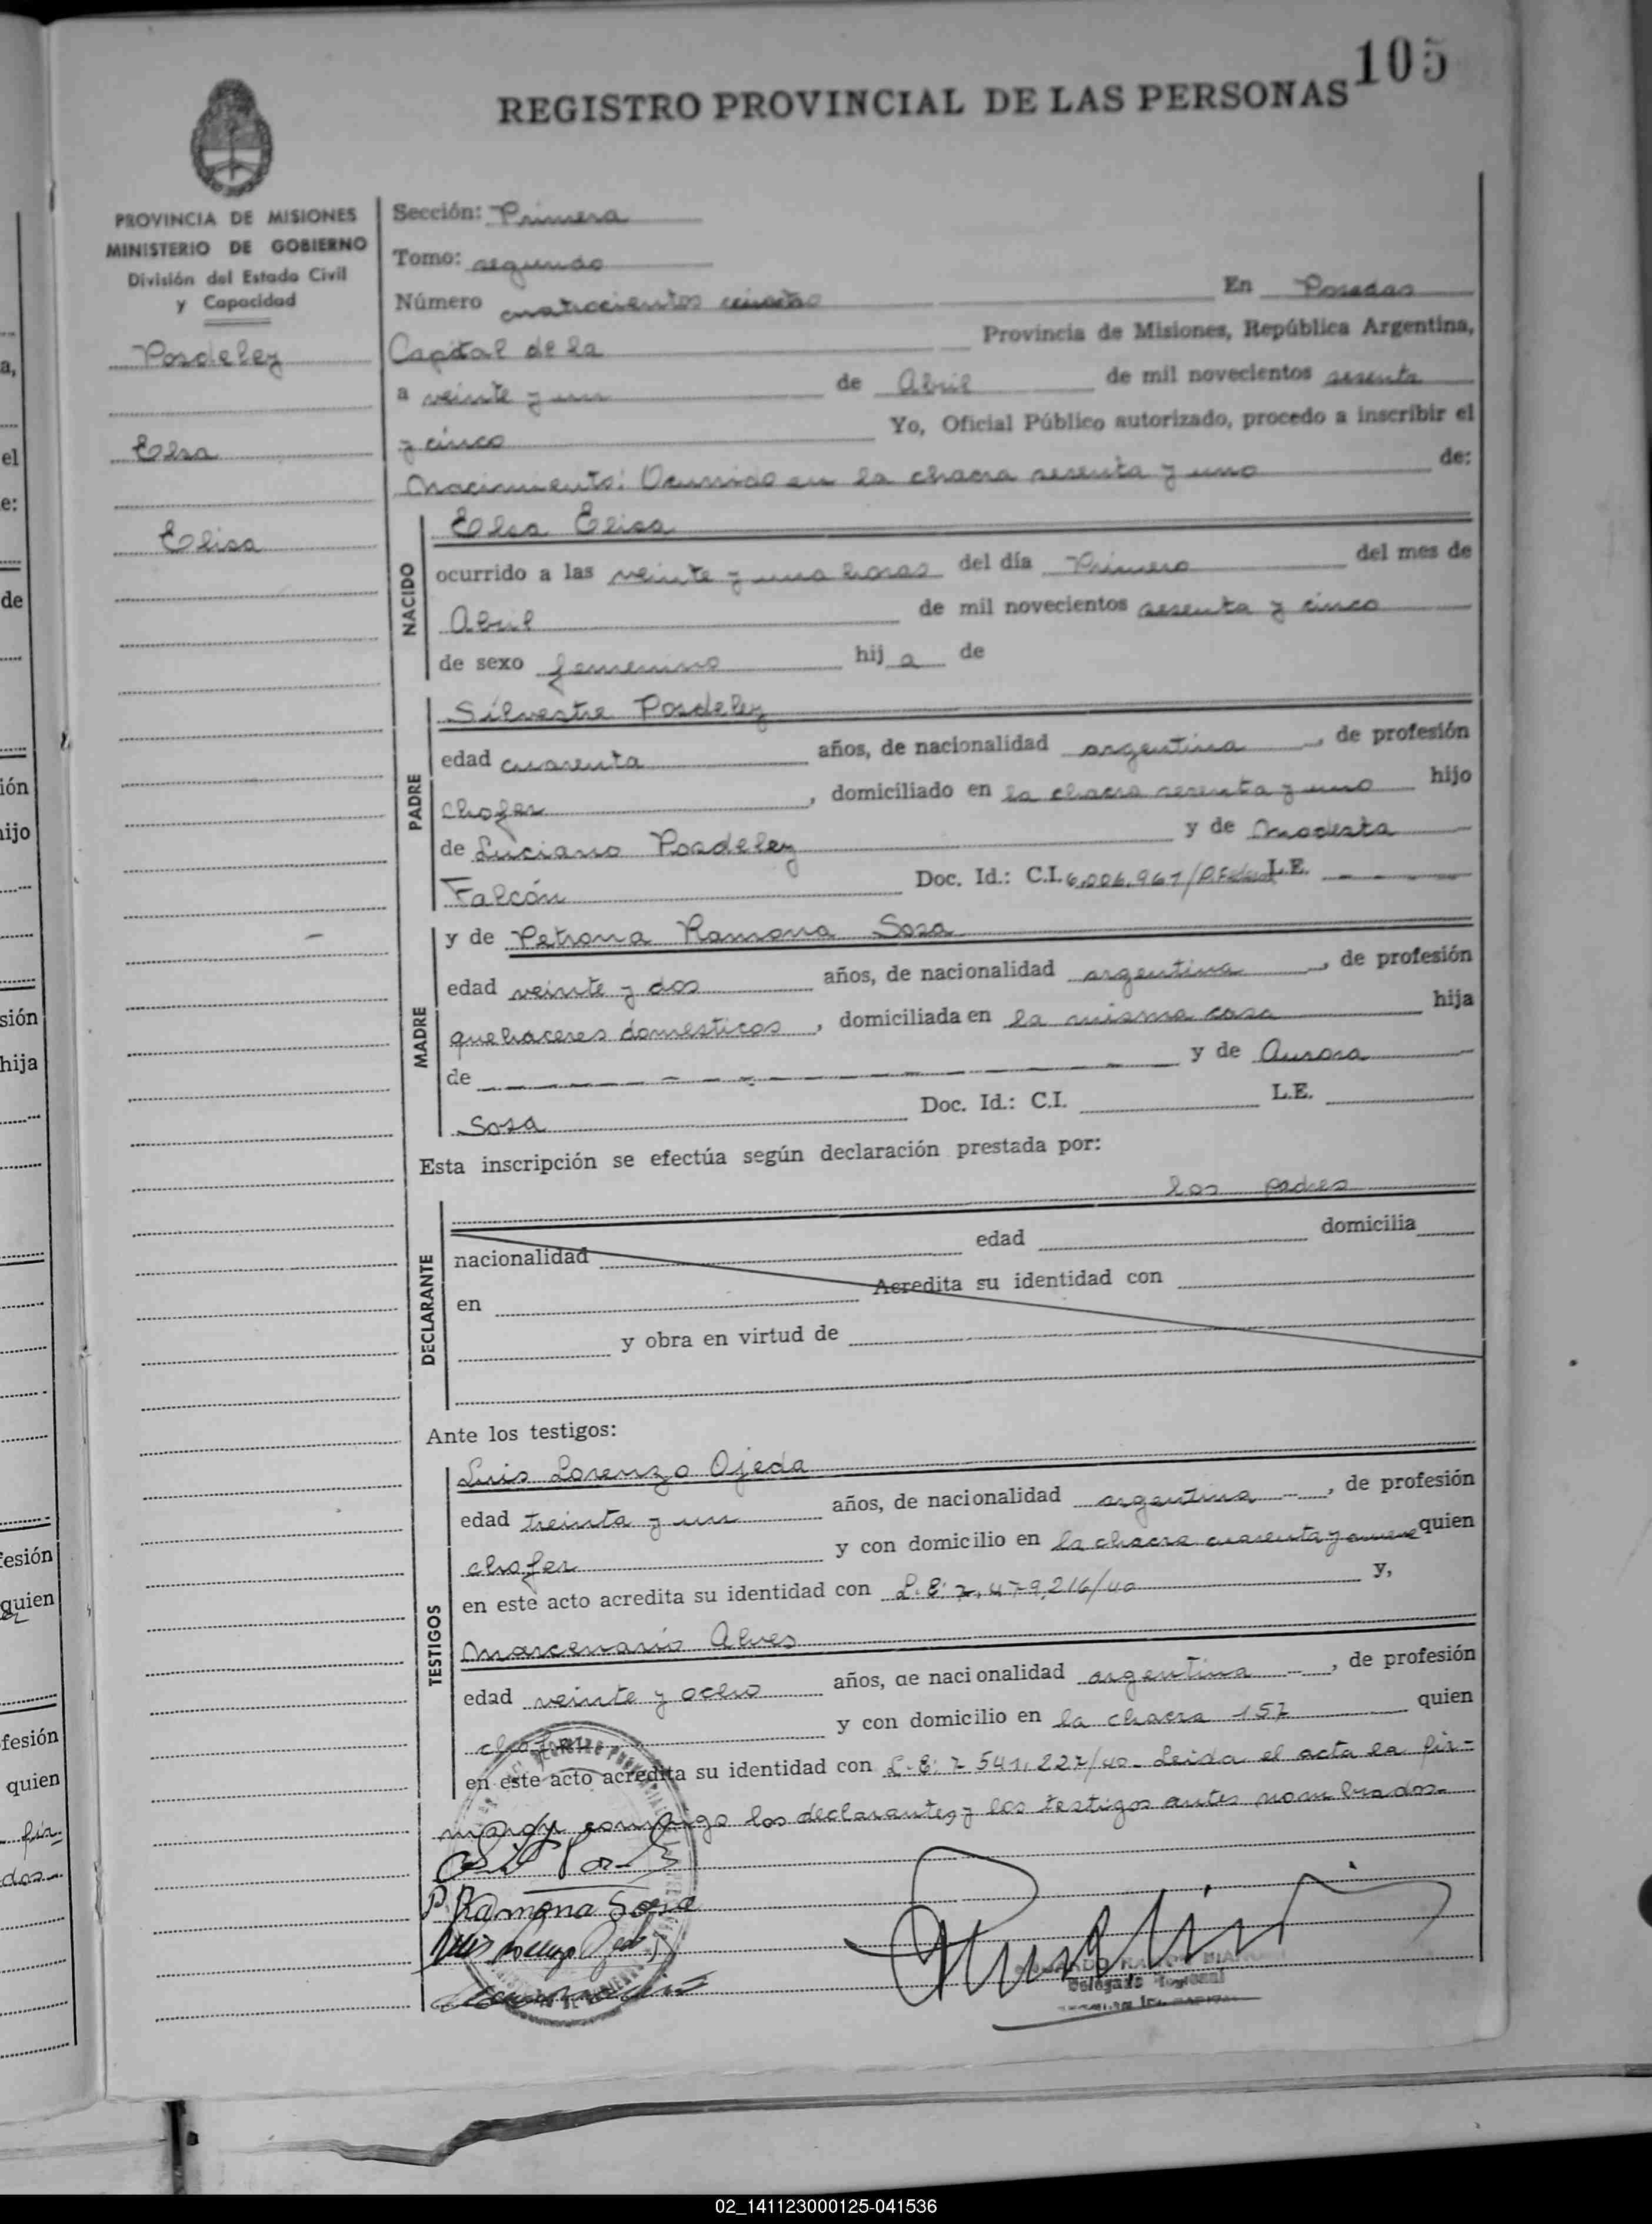 105
REGISTRO PROVINCIAL DE LAS PERSONAS
PROVINCIA DE MISIONES
MINISTERIO DE GOBIERNO
División del Estado Civil
y Capacidad
Posdeley
Elsa
Elisa
Sección: Primera
Tomo: segundo
Número cuatrocientos cuatro En Posadas
Capital de la Provincia de Misiones, República Argentina,
a veinte y un de Abril de mil novecientos sesenta
y cinco Yo, Oficial Público autorizado, procedo a inscribir el
Nacimiento: Ocurrido en la chacra sesenta y uno de:
NACIDO
Elsa Elisa
ocurrido a las veinte y una horas del día Primero del mes de
Abril de mil novecientos sesenta y cinco
de sexo femenino hij a de
PADRE
Silvestre Posdeley
edad cuarenta años, de nacionalidad argentina, de profesión
Chofer, domiciliado en la chacra sesenta y uno hijo
de Luciano Posdeley y de Modesta
Falcón Doc. Id.: C.I. 6.006.967/P.Federal L.E.
MADRE
y de Petrona Ramona Sosa
edad veinte y dos años, de nacionalidad argentina, de profesión
quehaceres domésticos, domiciliada en la misma casa hija
de y de Aurora
Sosa Doc. Id.: C.I. L.E.
Esta inscripción se efectúa según declaración prestada por:
los padres
DECLARANTE
nacionalidad edad domicilia
en Acredita su identidad con
y obra en virtud de
Ante los testigos:
TESTIGOS
Luis Lorenzo Ojeda
edad treinta y un años, de nacionalidad argentina, de profesión
chofer y con domicilio en la chacra cuarenta y nueve quien
en este acto acredita su identidad con L.E: 7.479.216/40 y,
Marcenario Alves
edad veinte y ocho años, de nacionalidad argentina, de profesión
chofer y con domicilio en la chacra 157 quien
en este acto acredita su identidad con L.E: 7.541.227/40. Leida el acta la fir-
man conmigo los declarantes y los testigos antes nombrados.
P. Ramona Sosa
Luis Lorenzo Ojeda
Delegado Regional
02_141123000125-041536